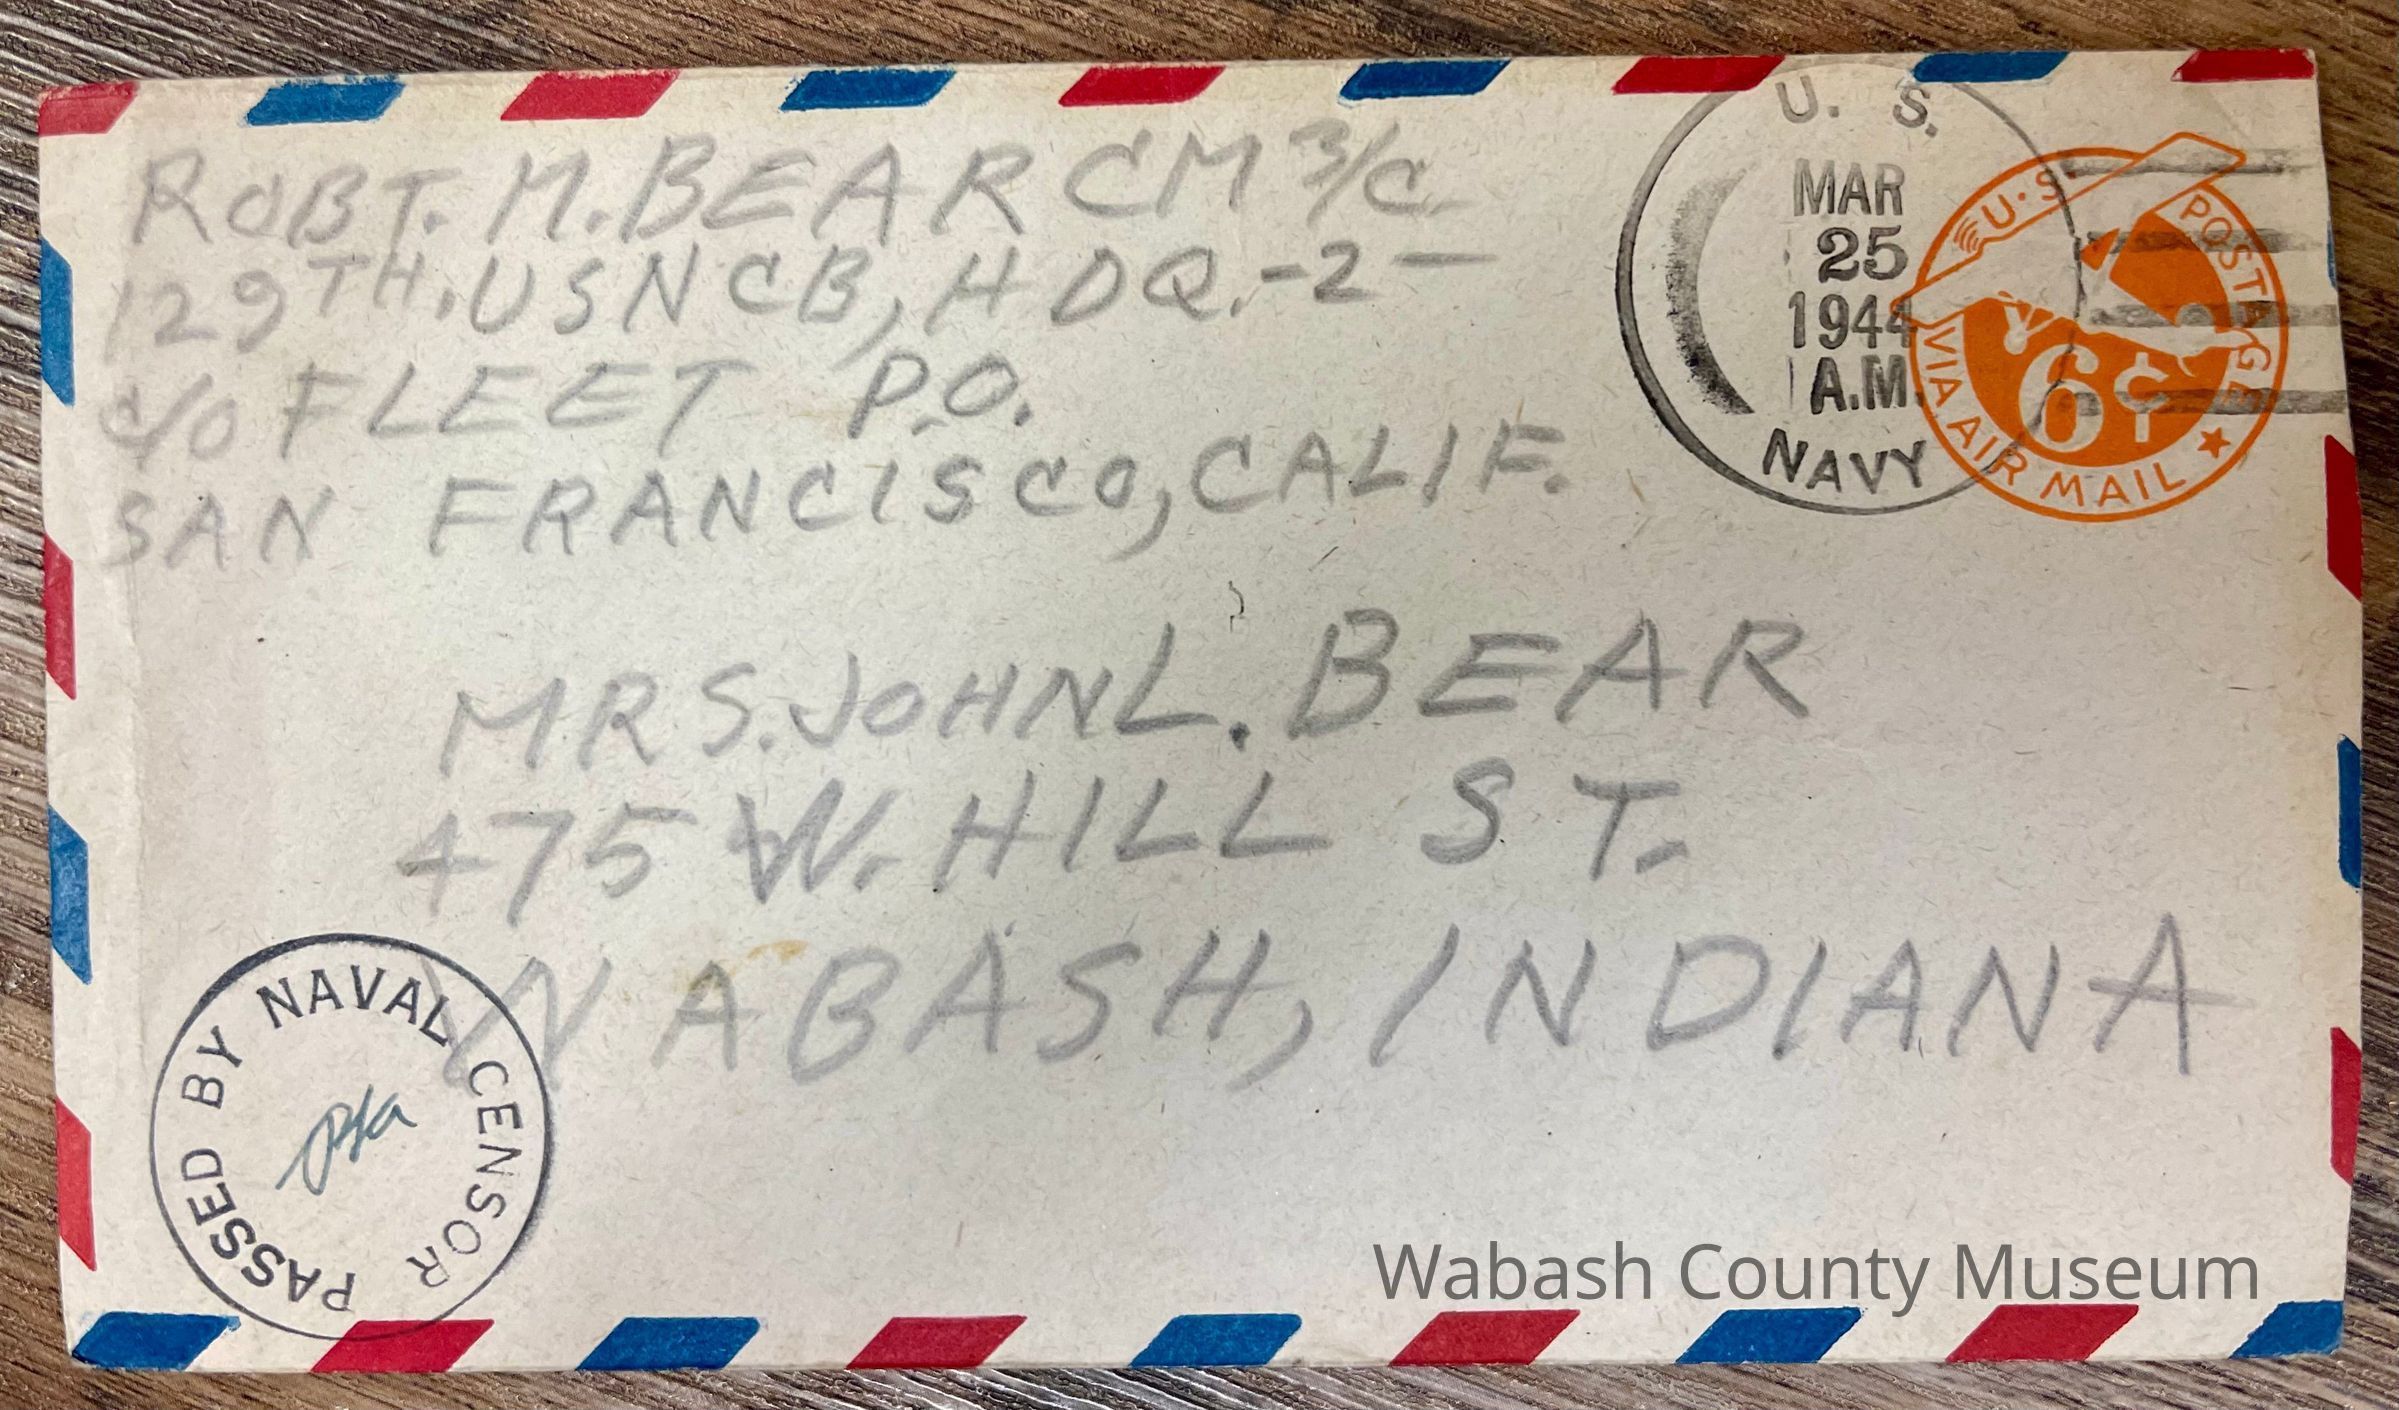 ROBT. M. BEAR CM 3/C
129TH. USNCB, HDQ.-2-
c/o FLEET P.O.
SAN FRANCISCO, CALIF.
U. S.
MAR
25
1944
A.M.
NAVY
U.S. POSTAGE
6¢
VIA AIR MAIL
MRS. JOHN L. BEAR
475 W. HILL ST.
WABASH, INDIANA
PASSED BY NAVAL CENSOR
Wabash County Museum